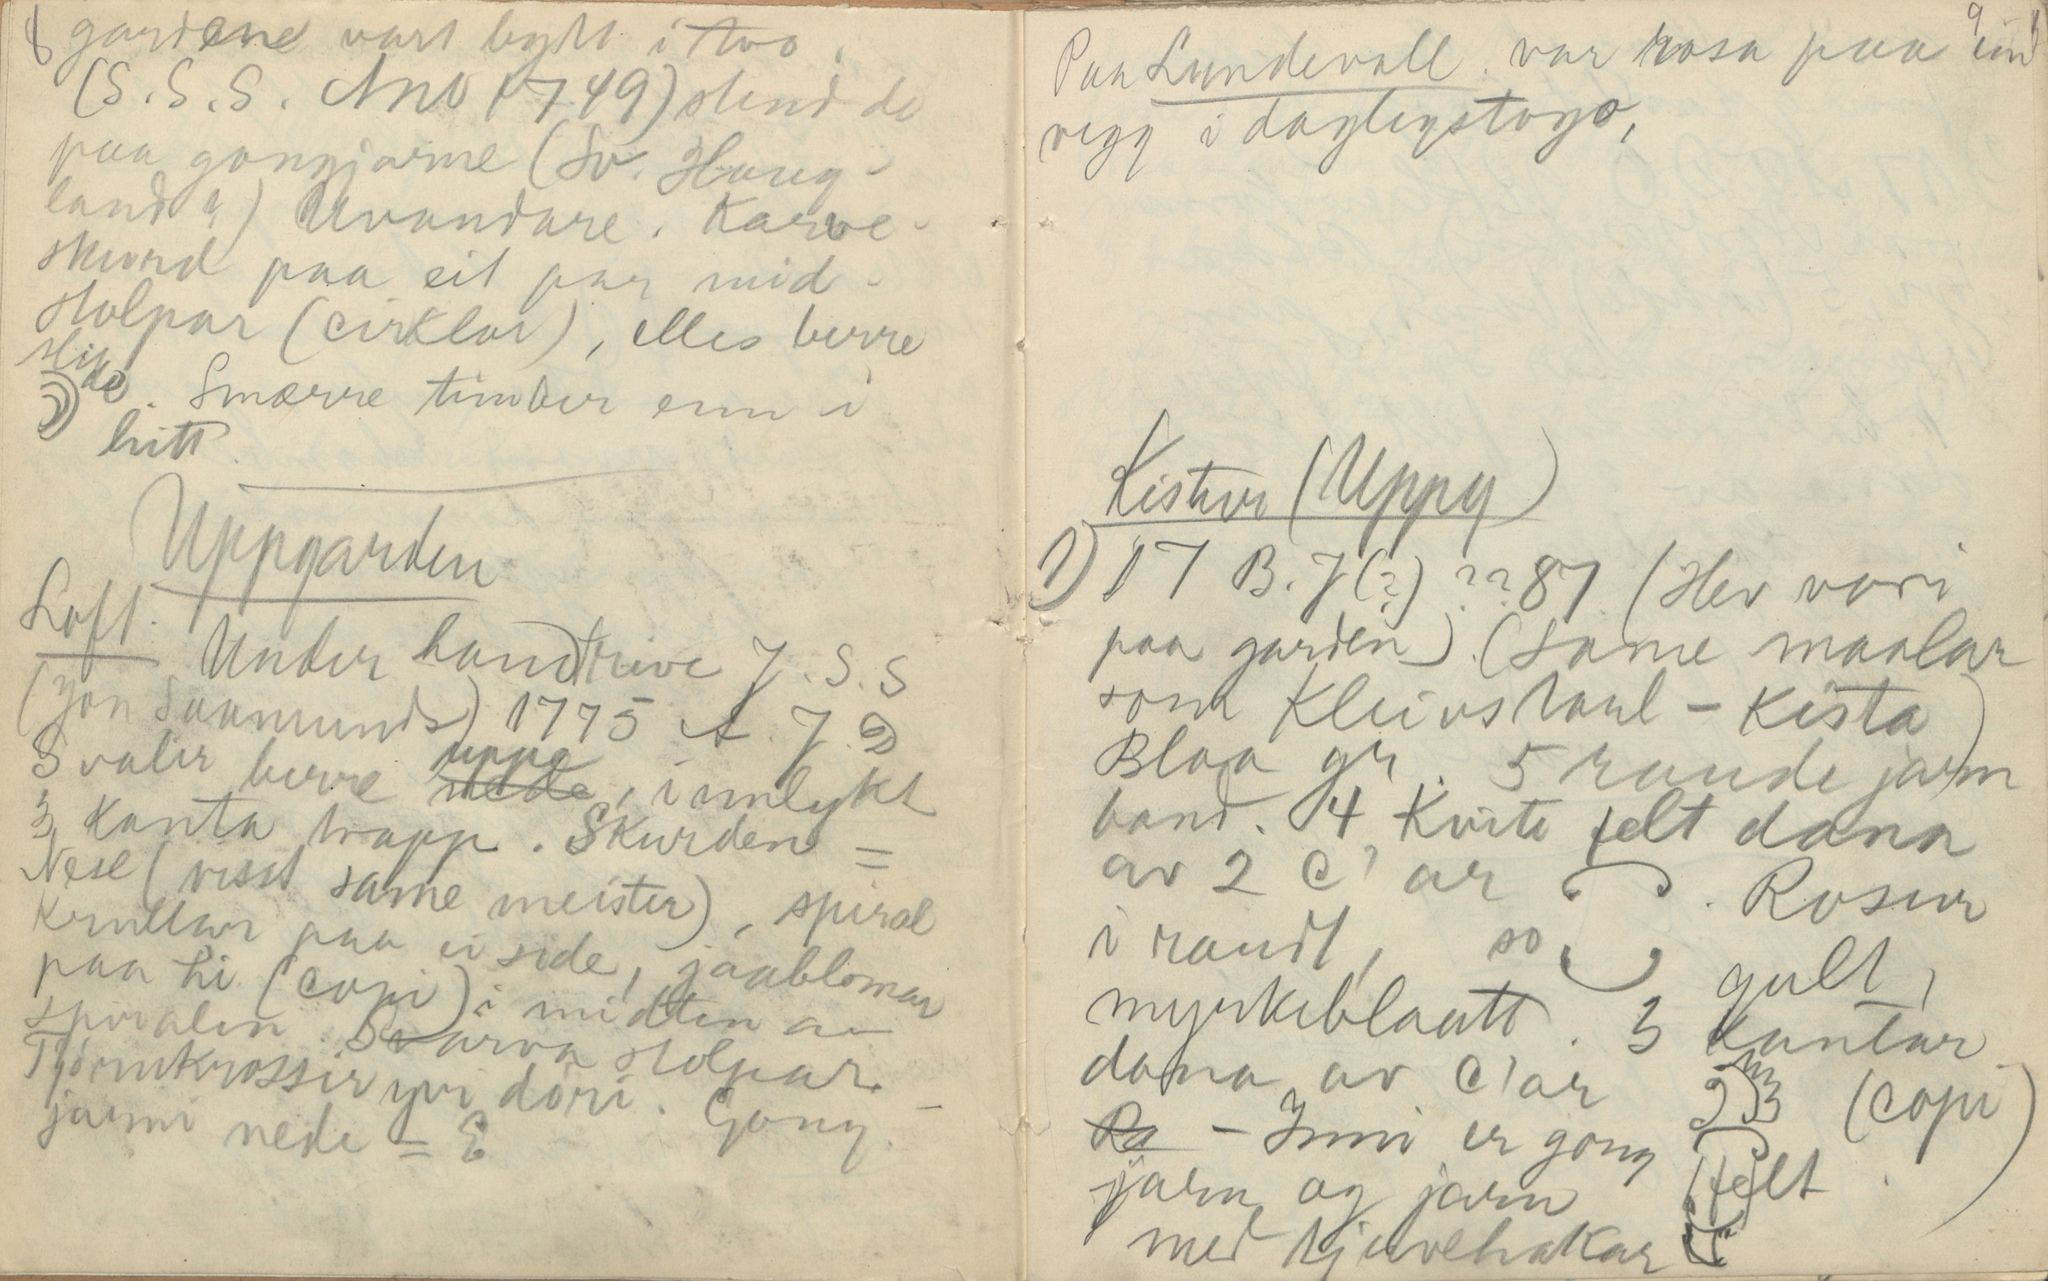 8
gardene vart bytt i tvo.
(S. S. S. Ano 1749) stend de
paa gongjarne (Sv. Haug-
land?) Uvandare. Karve-
skurd paa eit par mid-
stolpar (cirklar), elles berre
slike
. Smærre timber enn i
hitt.
Uppgarden
Loft. Under handtrive J. S. S
(Jon Saamunds) 1775 A. J. D
Svaler berre nede uppe, innlykt
3 kanta trapp. Skurden =
Nese (visst same meister), spiral
krullar paa ei side, jaablomar
paa hi (copi) i midten av
spiralen. Svarva stolpar.
Tjørnkrossir yvi döri. Gong-
jarni nede = E
9
Paa Lundevall var rosa paa ein
vegg i daglegstogo,
Kistur (Uppg)
1) 17 B. J (?) ?? 87 (Hev vori
paa garden). (Same maalar
som Kleivstaul - Kista)
Blaa gr. 5 raude jarn
band. 4 kvite felt dana
av 2 C'ar . Rosur
i raudt, so gult,
myrkeblaatt. 3 kantar
dana av C'ar (copi)
Ra - Inni er gong
jarn og jarn felt.
med kjuvehakar